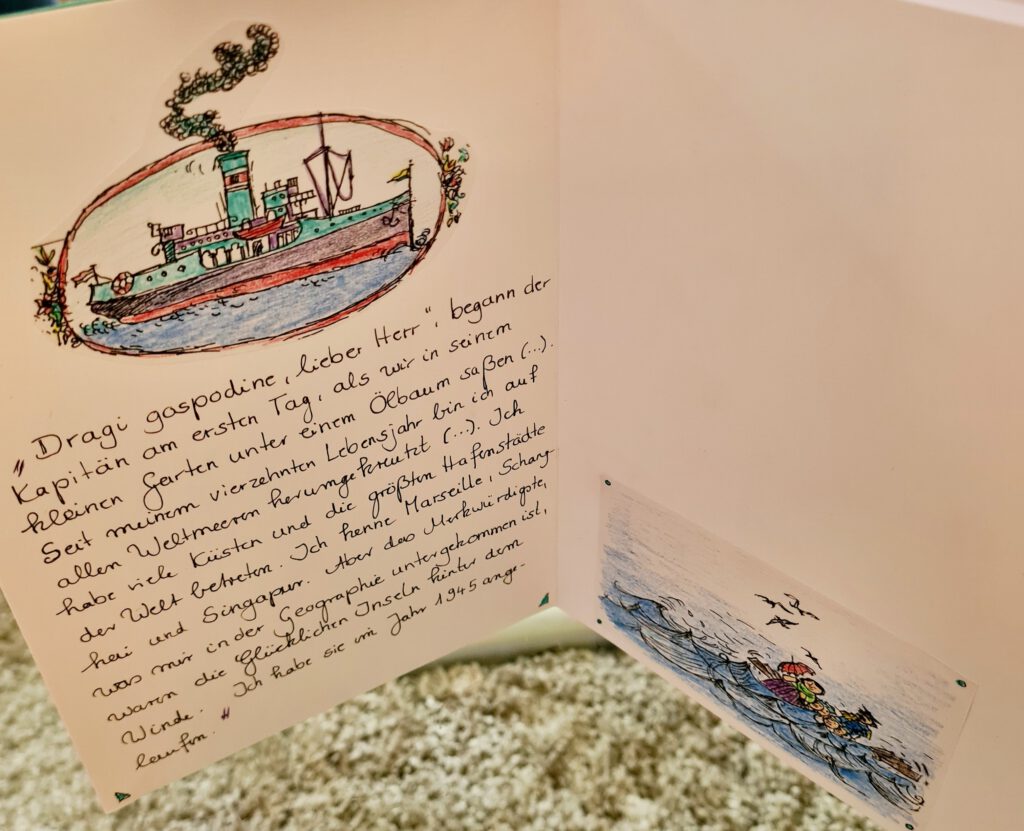 „Dragi gaspodine, lieber Herr“, begann der
Kapitän am ersten Tag, als wir in seinem
kleinen Garten unter einem Ölbaum saßen (...).
Seit meinem vierzehnten Lebensjahr bin ich auf
allen Weltmeeren herumgekreutzt (...). Ich
habe viele Küsten und die größten Hafenstädte
der Welt betreten. Ich kenne Marseille, Schang-
hei und Singapur. Aber das Merkwürdigste,
was mir in der Geographie untergekommen ist,
waren die Glücklichen Inseln hinter dem
Winde. Ich habe sie im Jahr 1945 ange-
laufen. "